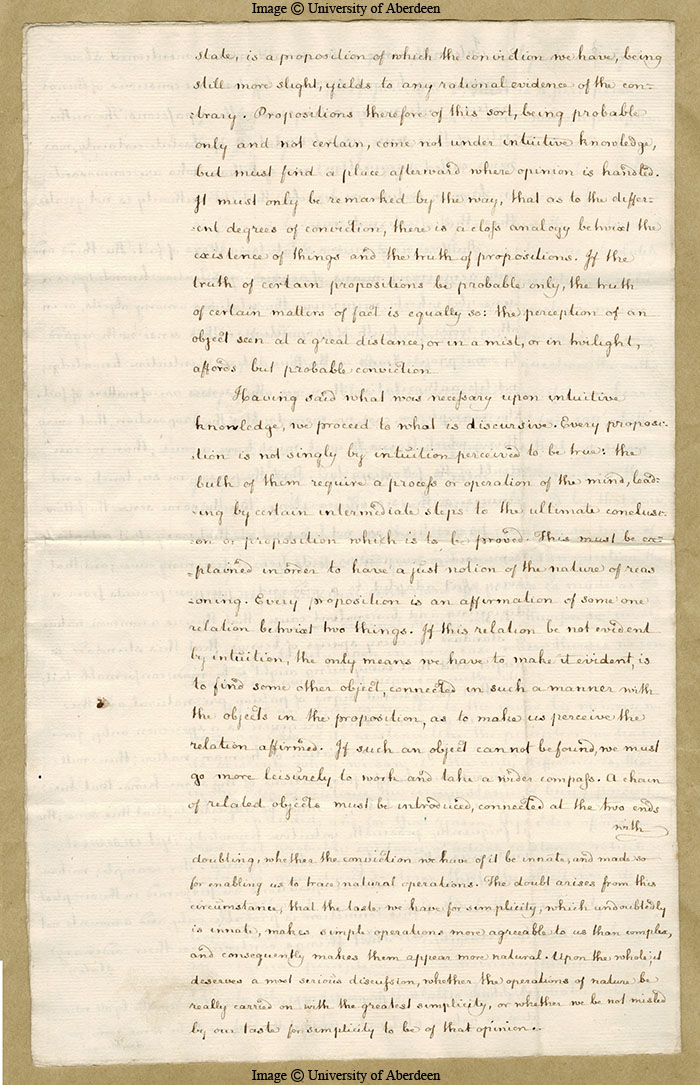 Image © University of Aberdeen
state, is a proposition of which the conviction we have, being
still more slight, yields to any rational evidence of the con=
=trary. Propositions therefore of this sort, being probable
only and not certain, come not under intuitive knowledge,
but must find a place afterward where opinion is handled.
It must only be remarked by the way, that as to the differ=
=ent degrees of conviction, there is a closs analogy betwixt the
existence of things and the truth of propositions. If the
truth of certain propositions be probable only, the truth
of certain matters of fact is equally so: the perception of an
object seen at a great distance, or in a mist, or in twilight,
affords but probable conviction
Having said what was necessary upon intuitive
knowledge, we proceed to what is discursive. Every proposi:
:tion is not singly by intuition perceived to be true: the
bulk of them require a process or operation of the mind, lead=
=ing by certain intermediate steps to the ultimate conclusi:
:on or proposition which is to be proved. This must be ex=
=plained in order to have a just notion of the nature of reas
=oning. Every proposition is an affirmation of some one
relation betwixt two things. If this relation be not evident
by intuition, the only means we have to make it evident, is
to find some other object, connected in such a manner with
the objects in the proposition, as to make us perceive the
relation affirmed. If such an object cannot be found, we must
go more leisurely to work and take a wider compass. A chain
of related objects must be introduced, connected at the two ends
with
doubting, whether the conviction we have of it be innate, and made so
for enabling us to trace natural operations. The doubt arises from this
circumstance, that the taste we have for simplicity, which undoubtedly
is innate, makes simple operations more agreeable to us than complex,
and consequently makes them appear more natural. Upon the whole, it
deserves a most serious discussion, whether the operations of nature be
really carried on with the greatest simplicity, or whether we be not misled
by our taste for simplicity to be of that opinion.
Image © University of Aberdeen